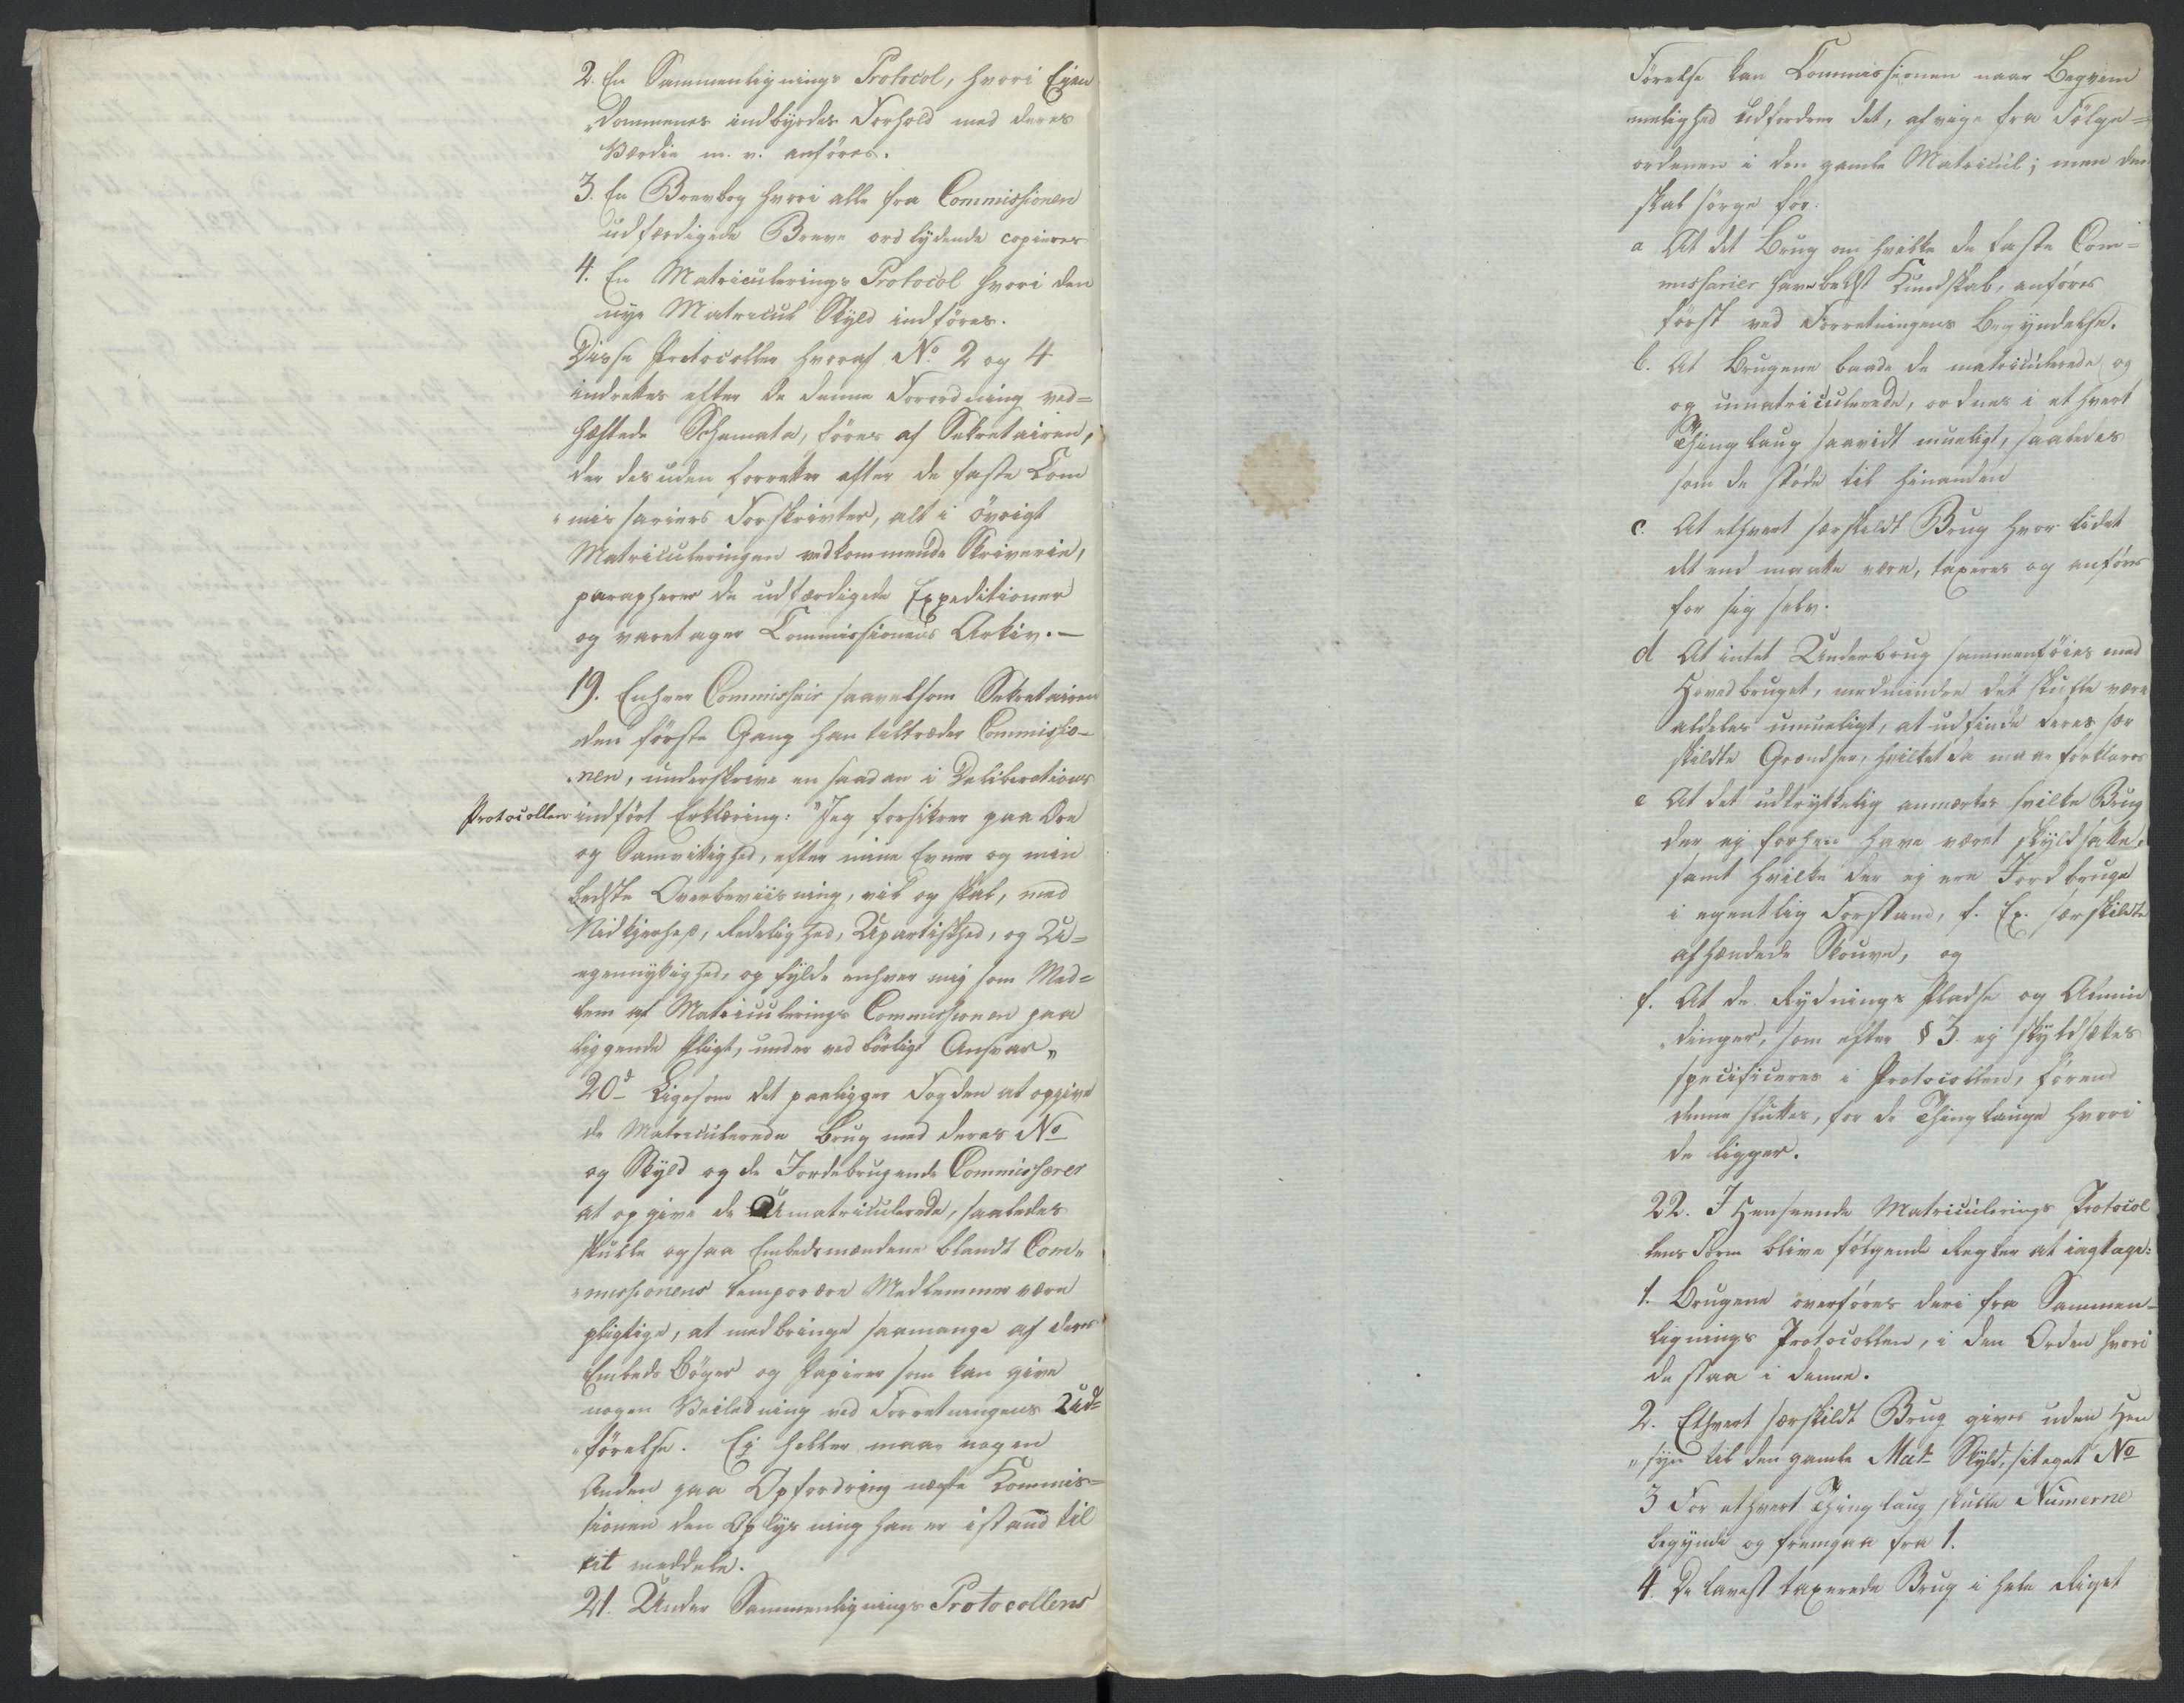 2. En Sammenlignings Protocol, hvori Eien
„dommenes indbyrdes Forhold med deres
Værdie m. v. anföres.
3. En Brevbog hvori alle fra Commissionen
udfærdigede Breve ordlydende copieres
4. En Matriculerings Protocol hvori den
nye Matricul Skyld indföres.
Disse Protocoller hvoraf No. 2 og 4
indrettes efter de denne Forordning ved=
hæftede Schemata, föres af Sekretairen,
der desuden forretter efter de faste Com
„missariers Forskrivter, alt i övrigt
Matriculeringen vedkommende Skriverie,
parapherer de udfærdigede Expeditioner
og varetager Commissionens Arkiv. —
19. Enhver Commissair saavelsom Sekretairen
den förste Gang han tiltræder Commissio-
„nen, underskrive en saadan i Deliberations
Protocollen indfört Erklæring: "Jeg forsikrer paa Ære
og Samvittighed, efter mine Evner og min
bedste Overbeviisning, vil og skal, med
Nidkjerhed, Redelighed, Upartiskhed, og U=
egennyttighed, opfylde enhver mig som Med=
lem af Matriculerings Commissionen paa
liggende Pligt, under vedbörligt Ansvar„
20d Ligesom det paaligger Fogden at opgive
de Matriculerede Brug med deres No
og Skyld og de Jordebrugende Commissærer
at opgive de Umatriculerede, saaledes
skulle ogsaa Embedsmændene blandt Com„
„missionens temporære Medlemmer være
pligtige, at medbringe saamange af deres
Embeds Böger og Papirer som kan give
nogen Veiledning ved Forretningens Ud=
„förelse. Ei heller maae nogen
Anden paa Opfordring nægte Kommis=
sionen den Oplysning han er istand til
at meddele.
21. Under Sammenlignings Protocollens
Förelse kan Commissionen naar Beqvem
melighed udfordrer det, afvige fra Fölge=
ordenen i den gamle Matricul; men den
skal sörge for:
a At det Brug om hvilke de faste Com=
missarier have bedst Kundskab, anföres
först ved Forretningens Begyndelse.
b. At Brugene baade de matriculerede og
og umatriculerede, ordnes i et hvert
Thinglaug saavidt mueligt, saaledes
som de stöde til hinanden
c. At ethvert særskildt Brug hvor lidet
det end maatte være, taxeres og anföres
for sig selv.
d At intet Underbrug sammenföies med
Hovedbruget, medmindre det skulle være
aldeles umueligt, at udfinde deres sær
skildte Grændser, hvilket da maae forklares
e At det udtrykkelig anmærkes hvilke Brug
der ej forhen have været skyldsatte,
samt hvilke der ej ere Jordbruge
i egentlig Forstand, f. Ex. særskildte
afhændede Skouve, og
f. At de Rydnings Pladse og Almin
„dinger, som efter § 3. ej skyldsættes
specificeres i Protocollen, förend
denne sluttes, for de Thinglauge hvori
de ligger.
22. I Henseende Matriculerings Protocol
lens Form blive fölgende Regler at iagttage:
1. Brugene overföres deri fra Sammen-
lignings Protocollen, i den Orden hvori
de staa i denne.
2. Ethvert særskildt Brug gives uden Hen
„syn til den gamle Mat- Skyld, sit eget No
3 For ethvert Thinglaug skulle Numerne
begynde og fremgaa fra 1.
4. De lavest taxerede Brug i hele Riget